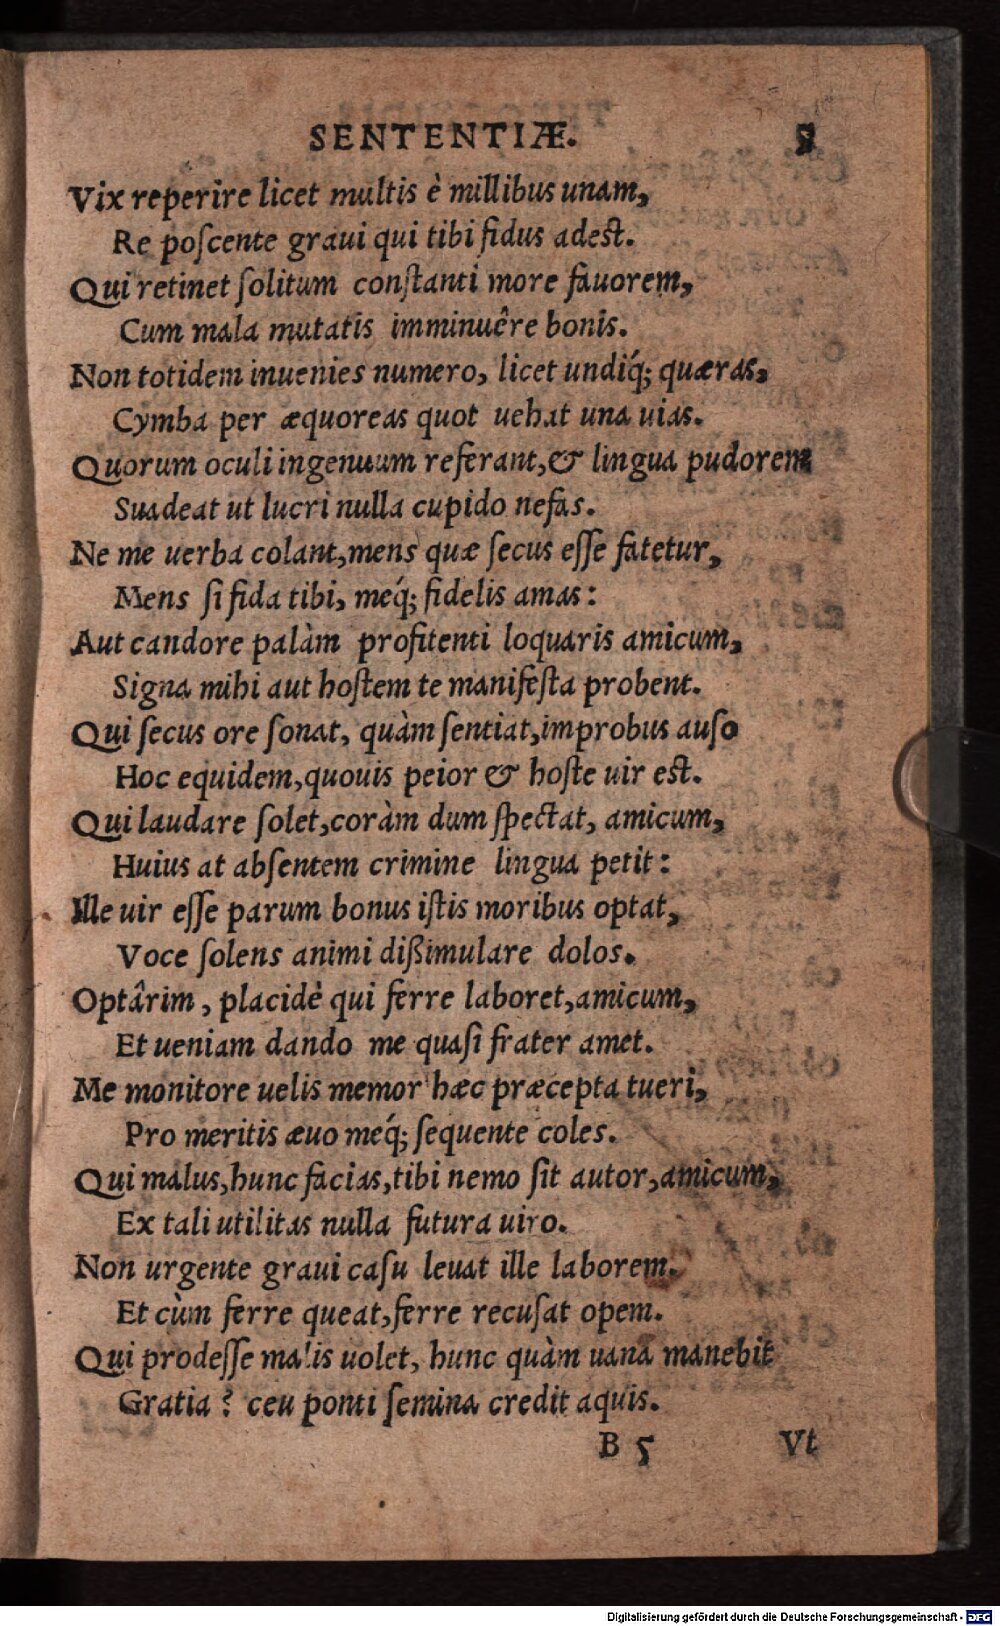 SENTENTIÆ. 5
Vix reperire licet multis è millibus unam,
Re poſcente graui qui tibi fidus adest.
Qui retinet ſolitum conſtanti more fauorem,
Cum mala mutatis imminuêre bonis.
Non totidem inuenies numero, licet undiq́; quæras,
Cymba per æquoreas quot uehat una uias.
Quorum oculi ingenuum referant, & lingua pudorem
Suadeat ut lucri nulla cupido nefas.
Ne me uerba colant, mens quæ ſecus eſſe fatetur,
Mens ſi fida tibi, meq́; fidelis amas:
Aut candore palàm profitenti loquaris amicum,
Signa mihi aut hoſtem te manifeſta probent.
Qui ſecus ore ſonat, quàm ſentiat, improbus auſo
Hoc equidem, quouis peior & hoſte uir est.
Qui laudare ſolet, coràm dum ſpectat, amicum,
Huius at abſentem crimine lingua petit:
Ille uir eſſe parum bonus iſtis moribus optat,
Voce ſolens animi dißimulare dolos.
Optârim, placidè qui ferre laboret, amicum,
Et ueniam dando me quaſi frater amet.
Me monitore uelis memor hæc præcepta tueri,
Pro meritis æuo meq́; ſequente coles.
Qui malus, hunc facias, tibi nemo ſit autor, amicum,
Ex tali utilitas nulla futura uiro.
Non urgente graui caſu leuat ille laborem.
Et cùm ferre queat, ferre recuſat opem.
Qui prodeſſe malis uolet, hunc quàm uana manebit
Gratia? ceu ponti ſemina credit aquis.
B 5 Vt
Digitalisierung gefördert durch die Deutsche Forschungsgemeinschaft - DFG